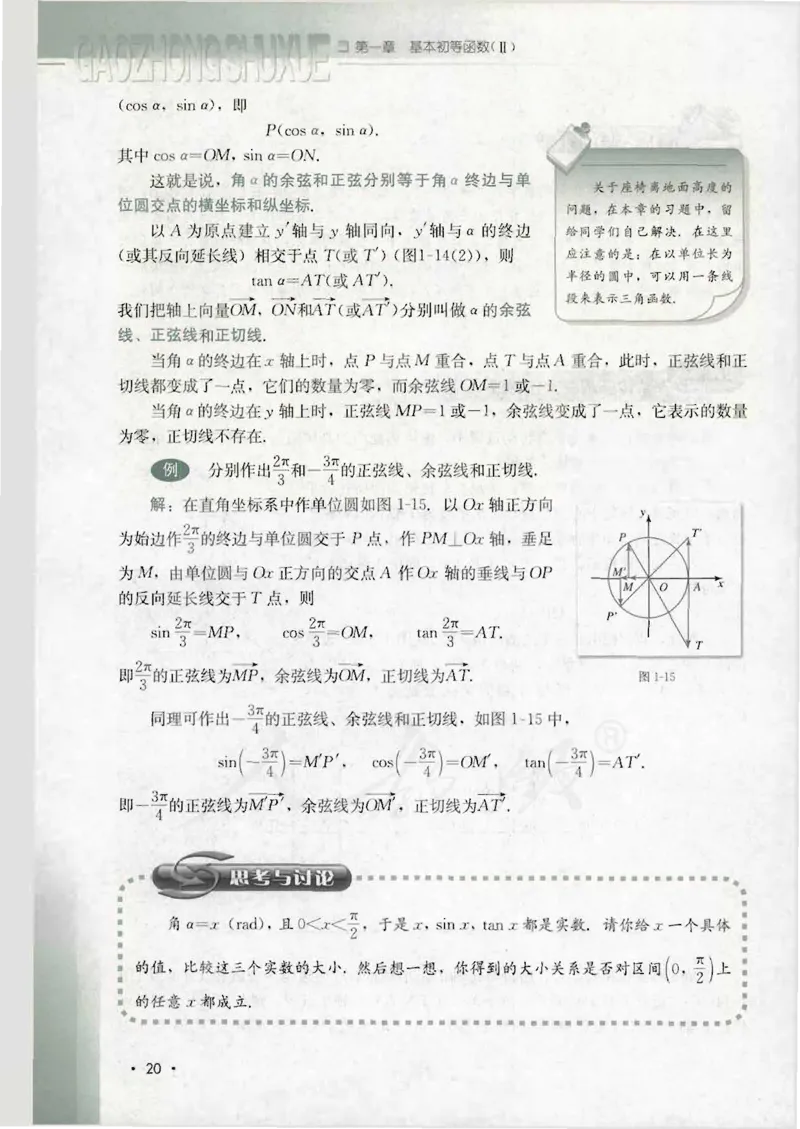 GAOZHONGSHUXUE
第一章 基本初等函数(Ⅱ)
(cos α, sin α), 即
P(cos α, sin α).
其中 cos α=OM, sin α=ON.
这就是说, 角 α 的余弦和正弦分别等于角 α 终边与单
位圆交点的横坐标和纵坐标.
以 A 为原点建立 y′轴与 y 轴同向, y′轴与 α 的终边
(或其反向延长线) 相交于点 T(或 T′) (图1-14(2)), 则
tan α=AT(或 AT′).
我们把轴上向量OM, ON和AT(或AT′)分别叫做 α 的余弦
线、正弦线和正切线.
关于座椅离地面高度的
问题, 在本章的习题中, 留
给同学们自己解决. 在这里
应注意的是: 在以单位长为
半径的圆中, 可以用一条线
段来表示三角函数.
当角 α 的终边在 x 轴上时, 点 P 与点 M 重合, 点 T 与点 A 重合, 此时, 正弦线和正
切线都变成了一点, 它们的数量为零, 而余弦线 OM=1 或−1.
当角 α 的终边在 y 轴上时, 正弦线 MP=1 或−1, 余弦线变成了一点, 它表示的数量
为零, 正切线不存在.
例 分别作出2π/3和−3π/4的正弦线、余弦线和正切线.
解: 在直角坐标系中作单位圆如图 1-15. 以 Ox 轴正方向
为始边作2π/3的终边与单位圆交于 P 点, 作 PM⊥Ox 轴, 垂足
为 M, 由单位圆与 Ox 正方向的交点 A 作 Ox 轴的垂线与 OP
的反向延长线交于 T 点, 则
sin 2π/3=MP, cos 2π/3=OM, tan 2π/3=AT.
即2π/3的正弦线为MP, 余弦线为OM, 正切线为AT.
y
P
T′
M′
M
O
A
x
P′
T
图 1-15
同理可作出−3π/4的正弦线、余弦线和正切线, 如图 1-15 中,
sin(−3π/4)=M′P′, cos(−3π/4)=OM′, tan(−3π/4)=AT′.
即−3π/4的正弦线为M′P′, 余弦线为OM′, 正切线为AT′.
思考与讨论
角 α=x (rad), 且 0<x<π/2, 于是 x, sin x, tan x 都是实数. 请你给 x 一个具体
的值, 比较这三个实数的大小. 然后想一想, 你得到的大小关系是否对区间(0, π/2)上
的任意 x 都成立.
· 20 ·